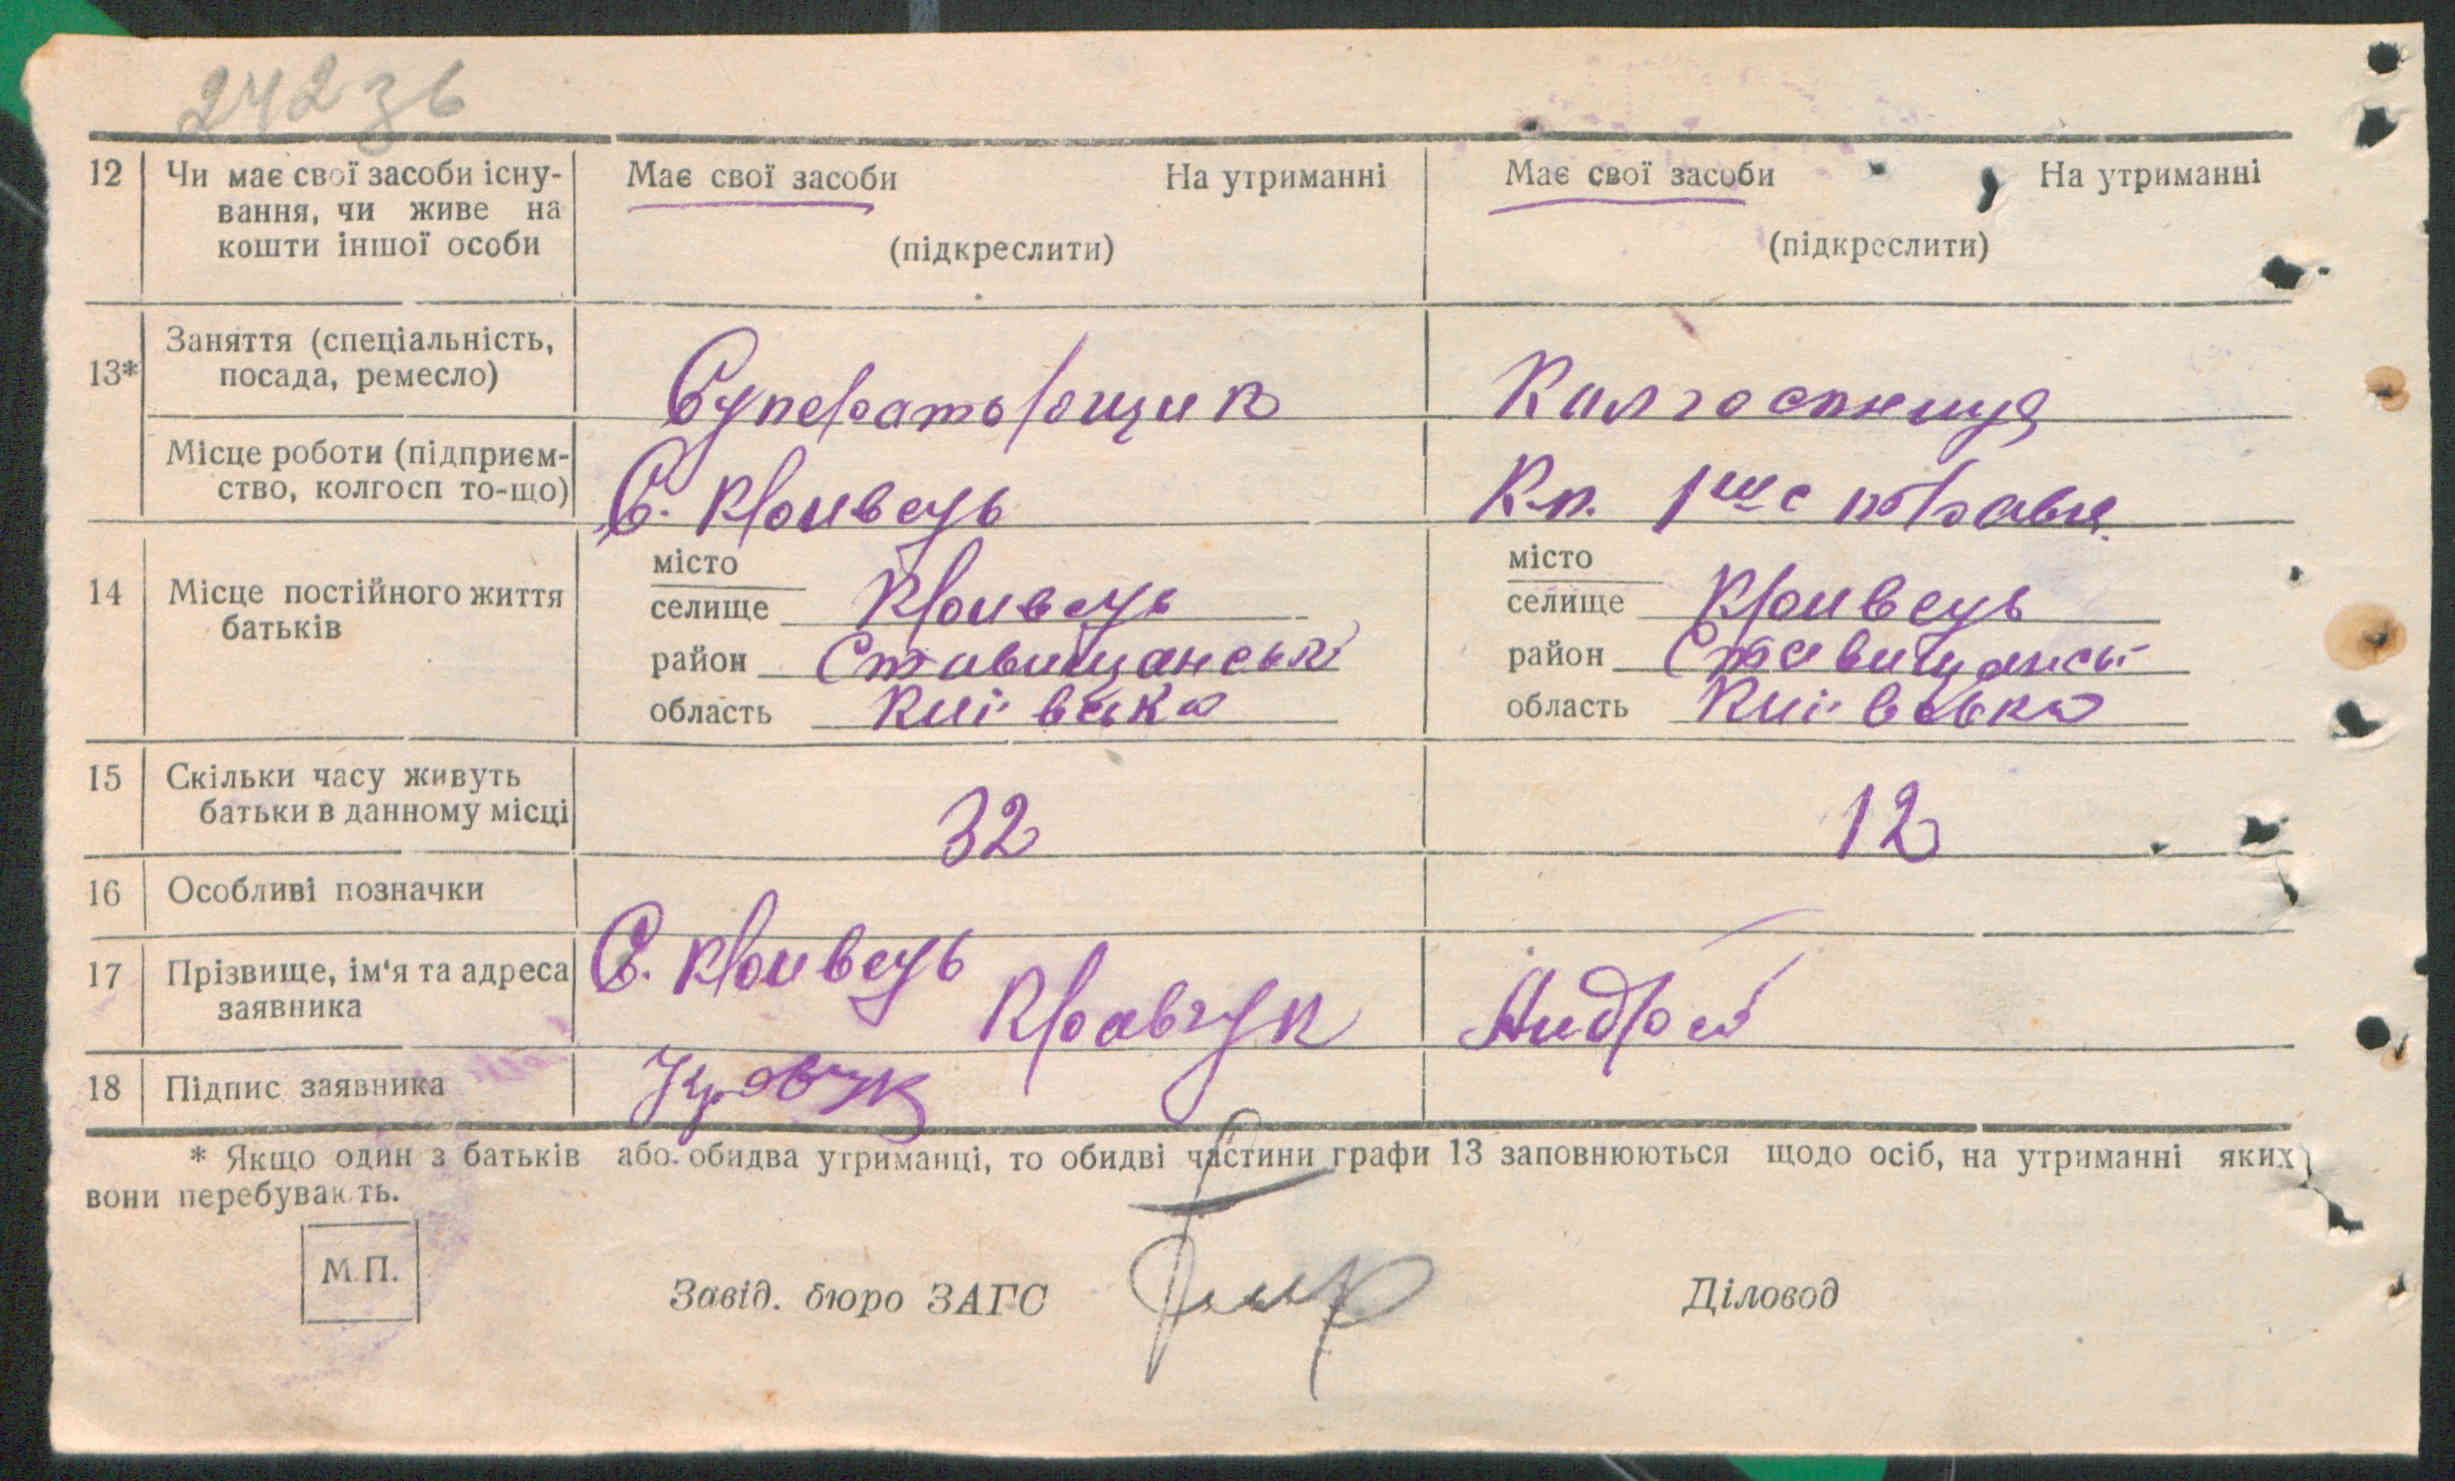 242зв
12 Чи має свої засоби існу- Має свої засоби На утриманні Має свої засоби На утриманні
вання, чи живе на
кошти іншої особи (підкреслити) (підкреслити)
Заняття (спеціальність,
13* посада, ремесло) Суператорщик Колгоспниця
Місце роботи (підприєм-
ство, колгосп то-що) С. Кривець К.п. 1ше травня
місто місто
14 Місце постійного життя селище Кривець селище Кривець
батьків район Ставищанськ район Ставищанськ
область Київська область Київська
15 Скільки часу живуть
батьки в данному місці 32 12
16 Особливі позначки
17 Прізвище, ім'я та адреса С. Кривець
заявника Кравчук Андрей
18 Підпис заявника Кравчук
* Якщо один з батьків або обидва утриманці, то обидві частини графи 13 заповнюються щодо осіб, на утриманні яких
вони перебувають.
М.П.
Завід. бюро ЗАГС Діловод